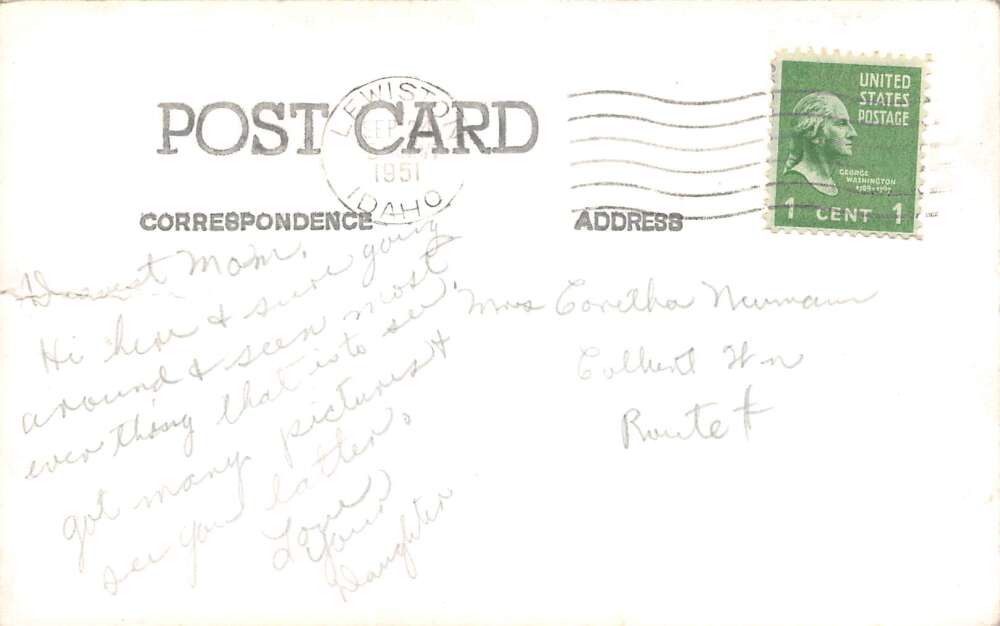 POST CARD
LEWISTON
SEP
1951
IDAHO
UNITED
STATES
POSTAGE
GEORGE
WASHINGTON
1789-1797
1 CENT 1
CORRESPONDENCE
ADDRESS
Dearest Mom,
Hi here & sure going
around & seen most
ever thing that is to see,
got many pictures &
see you latter.
Love
Your
Daughter
Mrs Coretha Neumann
Colbert Wn
Route